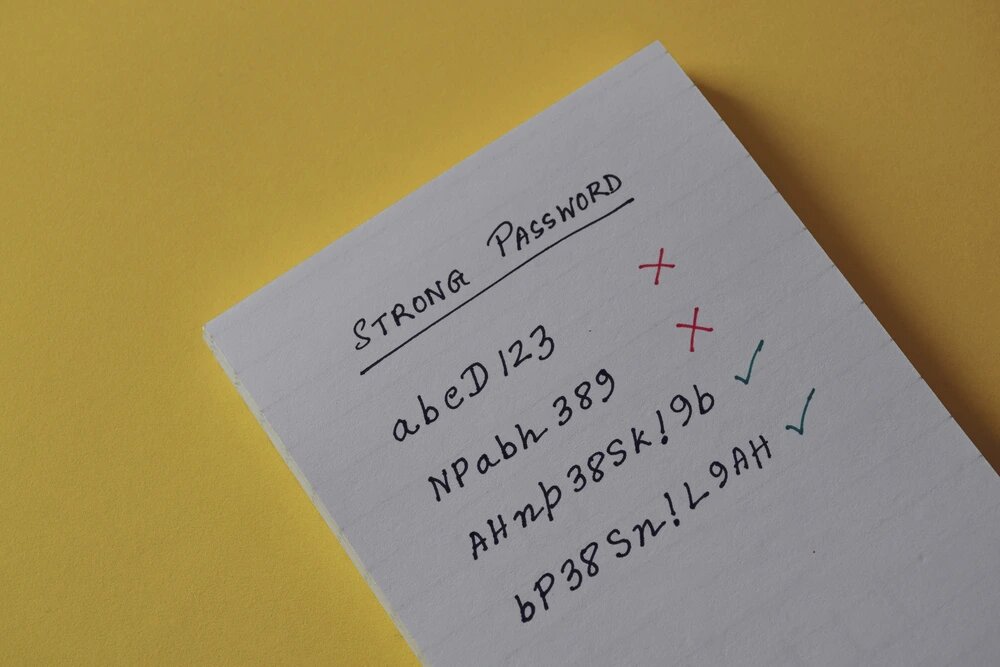 STRONG PASSWORD
abcD123
NPabh389
AHnp38Sk!9b
bP38Sn!L9AH